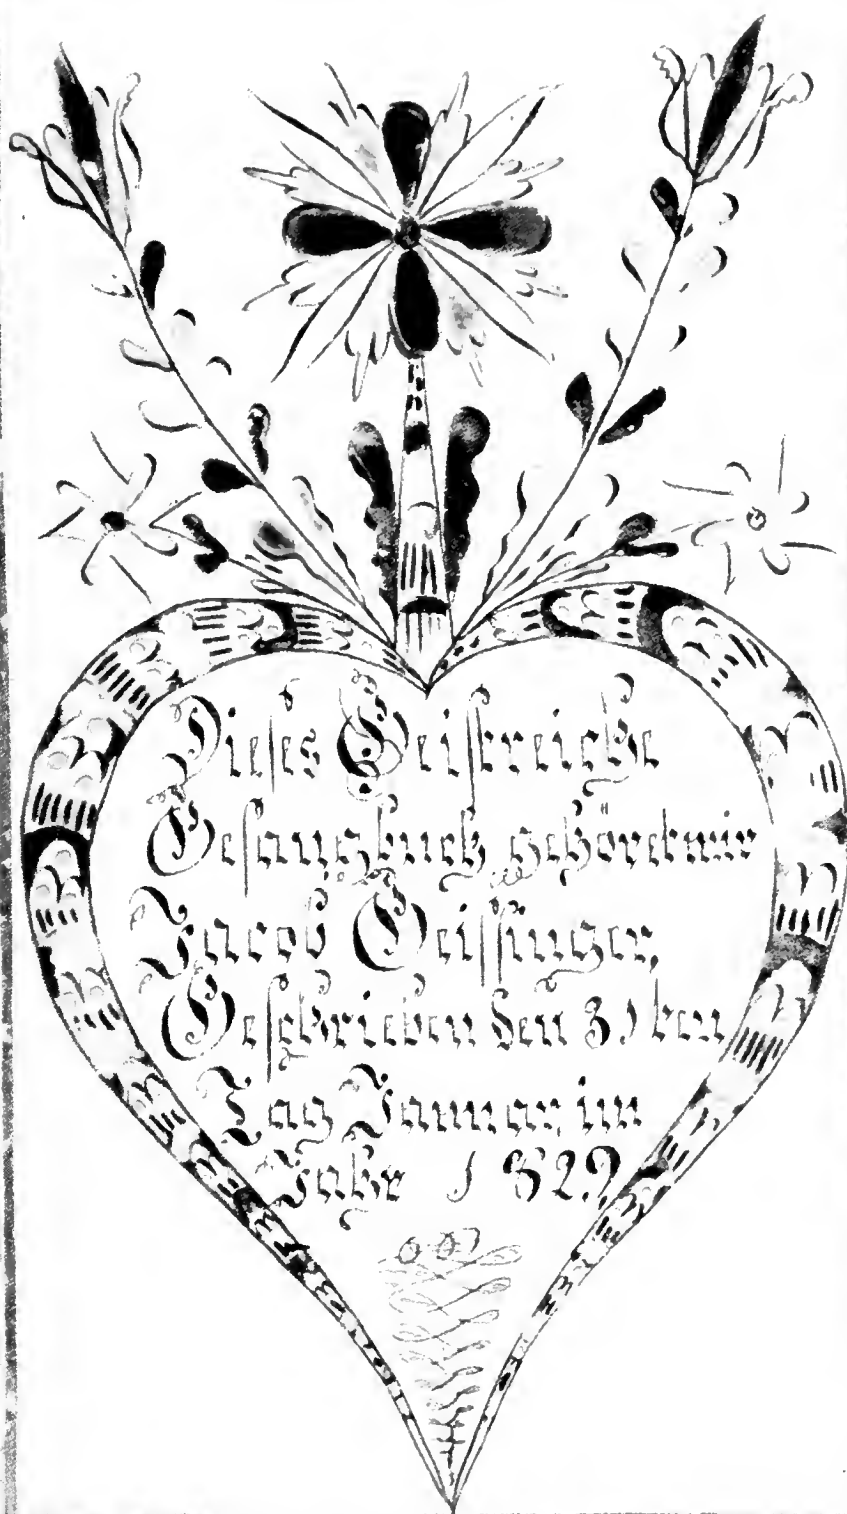 Dieses Geistreiche
Gesangbuch gehöret mir
Jacob Geissinger,
Geschrieben den 31ten
Tag Januar, im
Jahr 1829